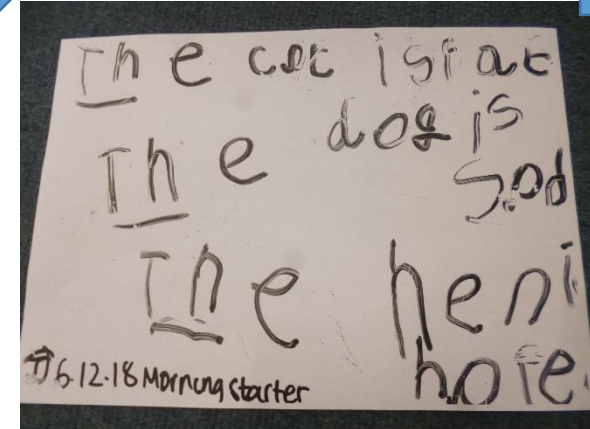 The cat is fat
The dog is
Sad
The hen i
6.12.18 Morning starter